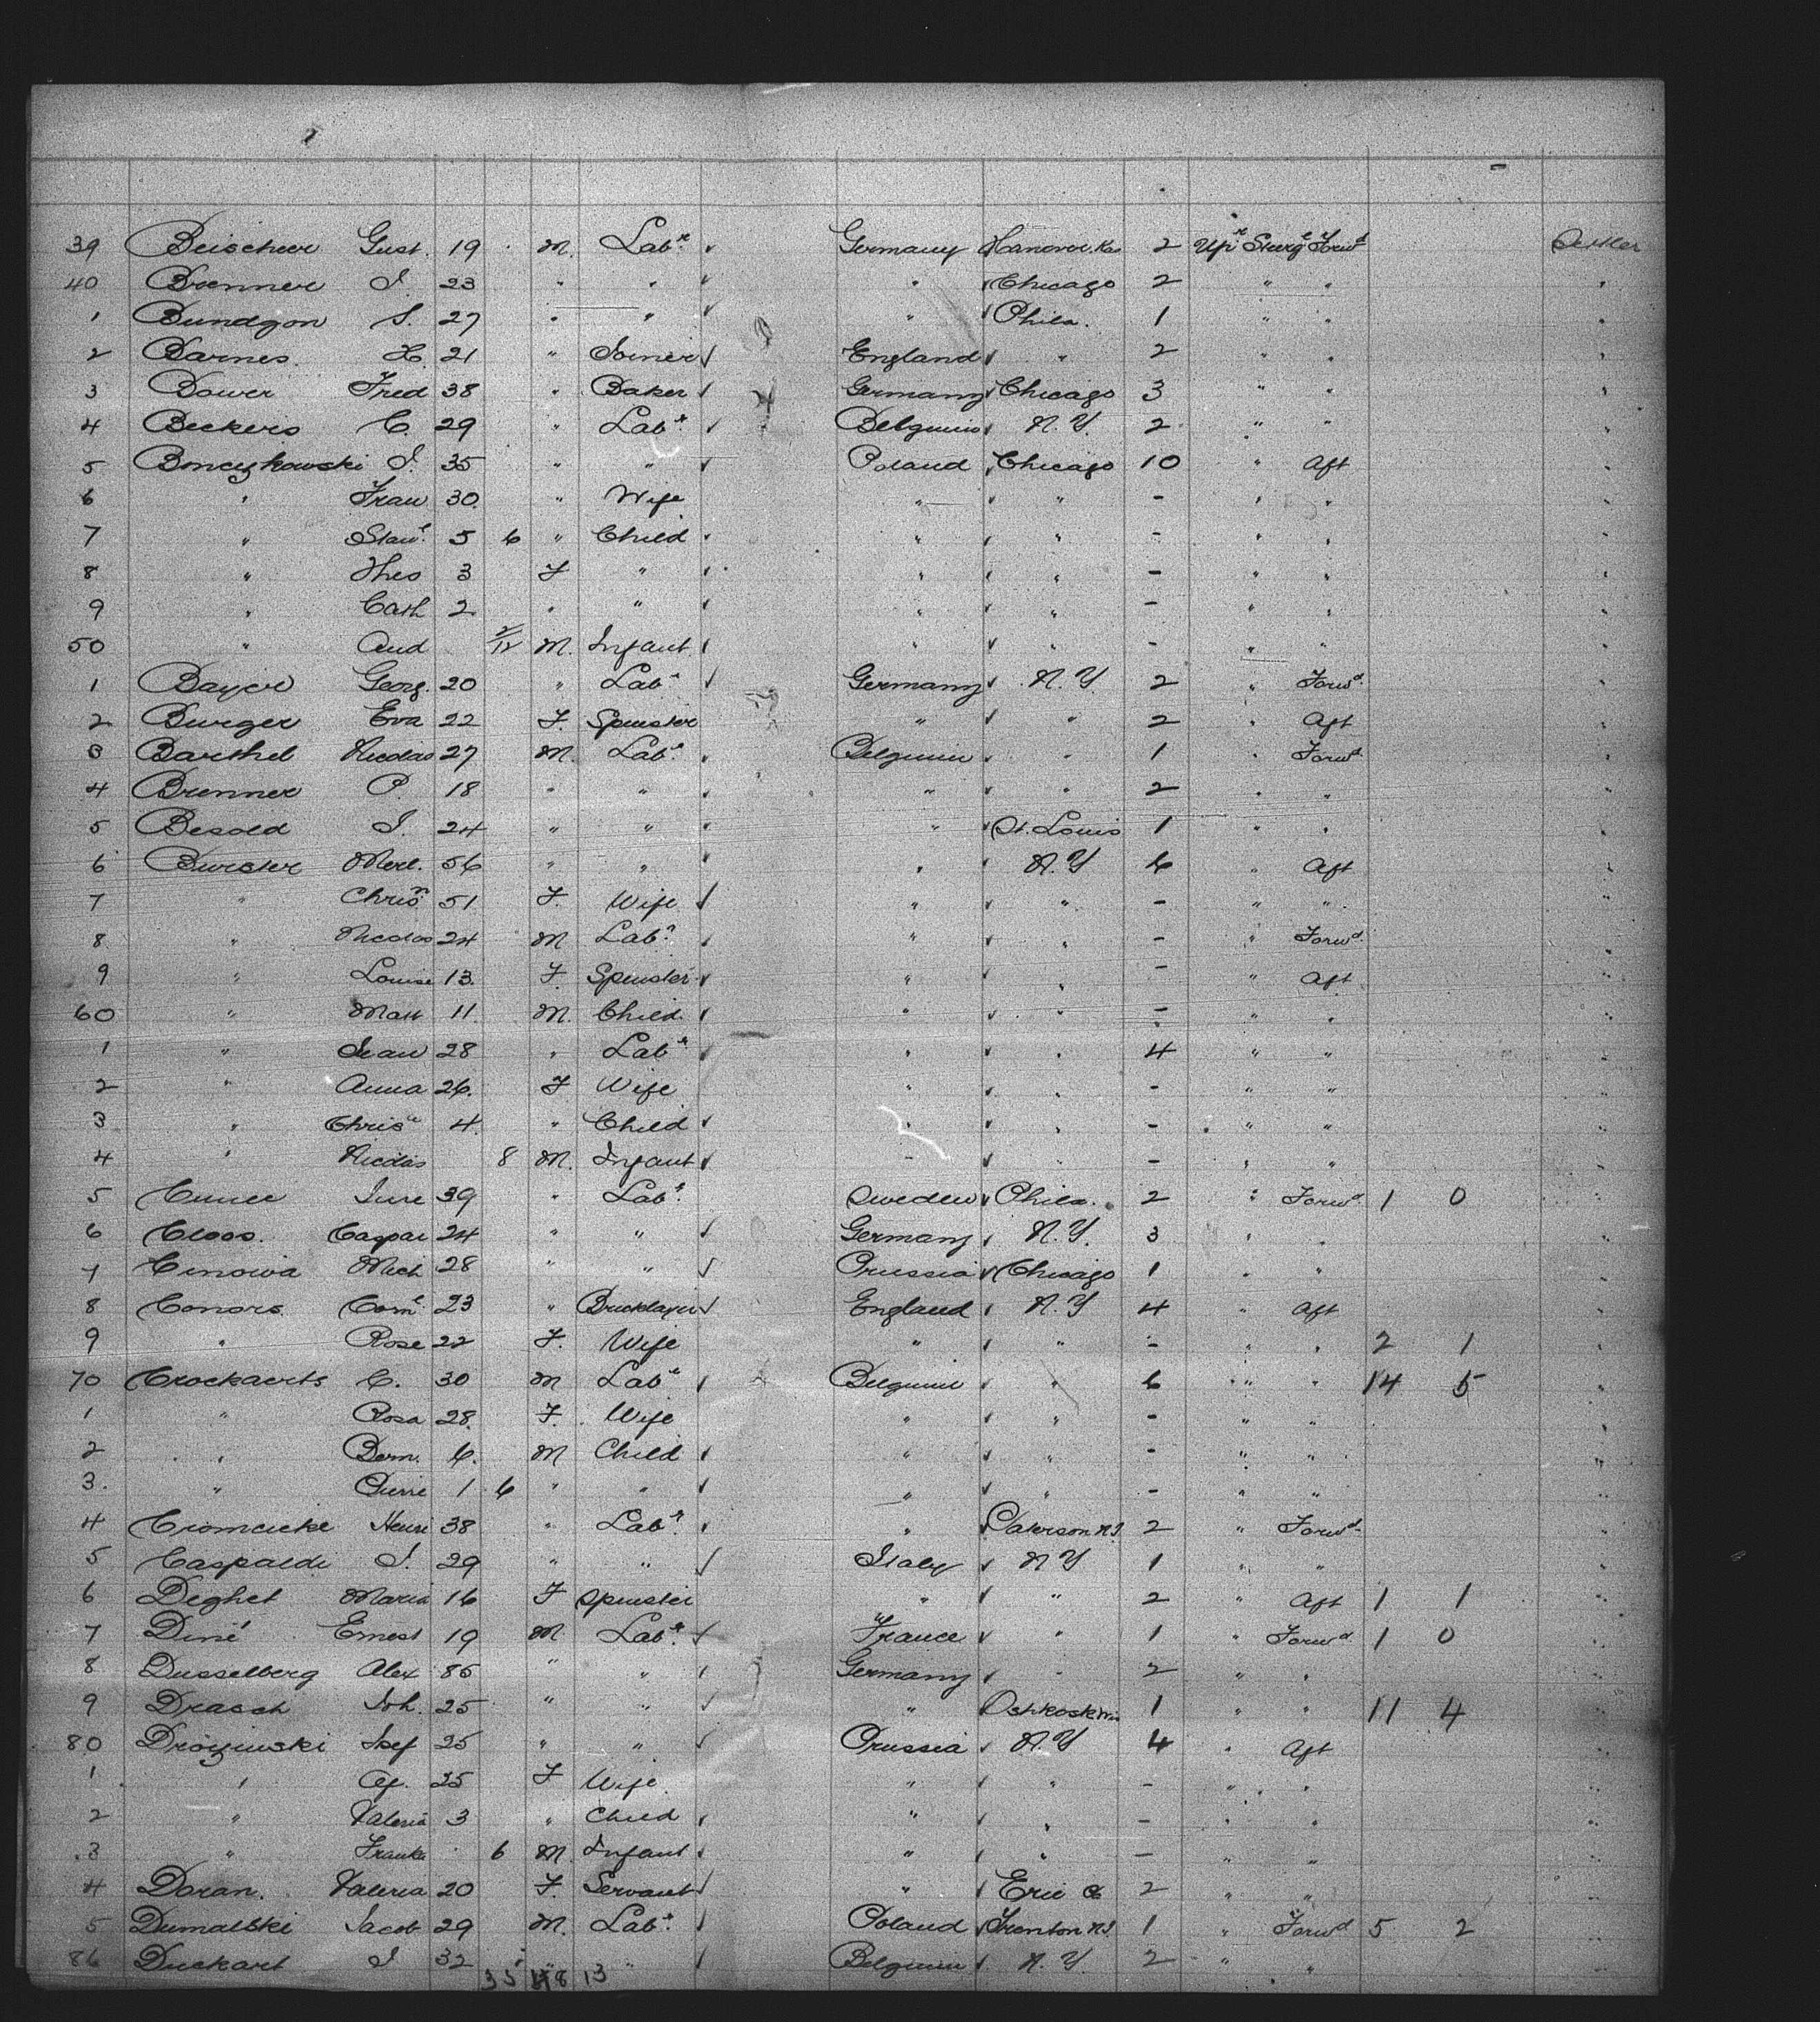 39 Beischeer Gust. 19 M. Labr Germany Hanover. Ka 2 Upr Steerge Forwd Settler
40 Brenner J. 23 " " " Chicago 2 " "
1 Bundgon S. 27 " " " Phila. 1 " "
2 Barnes. H. 21 " Joiner England " 2 " "
3 Bower Fred 38 " Baker Germany Chicago 3 " "
4 Beckers C. 29 " Labr Belgium N.Y. 2 " "
5 Bonczykowski J. 35 " " Poland Chicago 10 " Aft
6 " Frau 30 " Wife " " - " "
7 " Stanl 5 6 " Child " " - " "
8 " Theo 3 F " " " - " "
9 " Cath 2 " " " " - " "
50 " And 2/12 M. Infant " " - " "
1 Bayer Georg. 20 " Labr Germany N.Y 2 " Forwd
2 Burger Eva 22 F. Spinster " " 2 " Aft
3 Barthel Nicolas 27 M. Labr Belgium " 1 " Forwd
4 Brenner P. 18 " " " " 2 " "
5 Besold J. 24 " " " St. Louis 1 " "
6 Burster Merl. 56 " " " N.Y 6 " Aft
7 " Chrisn 51 F. Wife " " - " "
8 " Nicolas 24 M Labr " " - " Forwd
9 " Louise 13. F. Spinster " " - " Aft
60 " Matt 11 M. Child " " - " "
1 " Jean 28 " Labr " " 4 " "
2 " Anna 26. F Wife " " - " "
3 " Chrisn 4. " Child " " - " "
4 " Nicolas 8 M. Infant " " - " "
5 Cunee Ture 39 " Labr Sweden Phila. 2 " Forwd 1 0
6 Cloos. Caspar 24 " " Germany N.Y. 3 " "
7 Cinowa Mich 28 " " Prussia Chicago 1 " "
8 Conors Cornl 23 " Bricklayer England N.Y 4 " Aft
9 " Rose 22 F. Wife " " - " " 2 1
70 Crockaerts C. 30 M Labr Belgium " 6 " " 14 5
1 " Rosa 28. F. Wife " " - " "
2 " Bern. 6. M Child " " - " "
3. " Pierre 1 6 " " " " - " "
4 Cromcicke Henri 38 " Labr " Paterson NJ 2 " Forwd
5 Caspaldi J. 29 " " Italy N Y 1 " "
6 Deghet Maria 16 F Spinster " " 2 " Aft 1 1
7 Diné Ernest 19 M Labr France " 1 " Forwd 1 0
8 Dusselberg Alex 85 " " Germany " 2 " "
9 Drasch Joh. 25 " " " Oshkosk Wis 1 " " 11 4
80 Drozinski Josef 25 " " Prussia N.Y 4 " Aft
1 " Ag. 25 F Wife " " - " "
2 " Valeria 3 " Child " " - " "
3 " Franka 6 M. Infant " " - " "
4 Doran. Valeria 20 F. Servant " Erie 2 " "
5 Dumalski Jacob 29 M. Labr Poland Trenton NJ. 1 " Forwd 5 2
86 Duckart J 32 " " Belgium N.Y. 2 " "
35 48 13